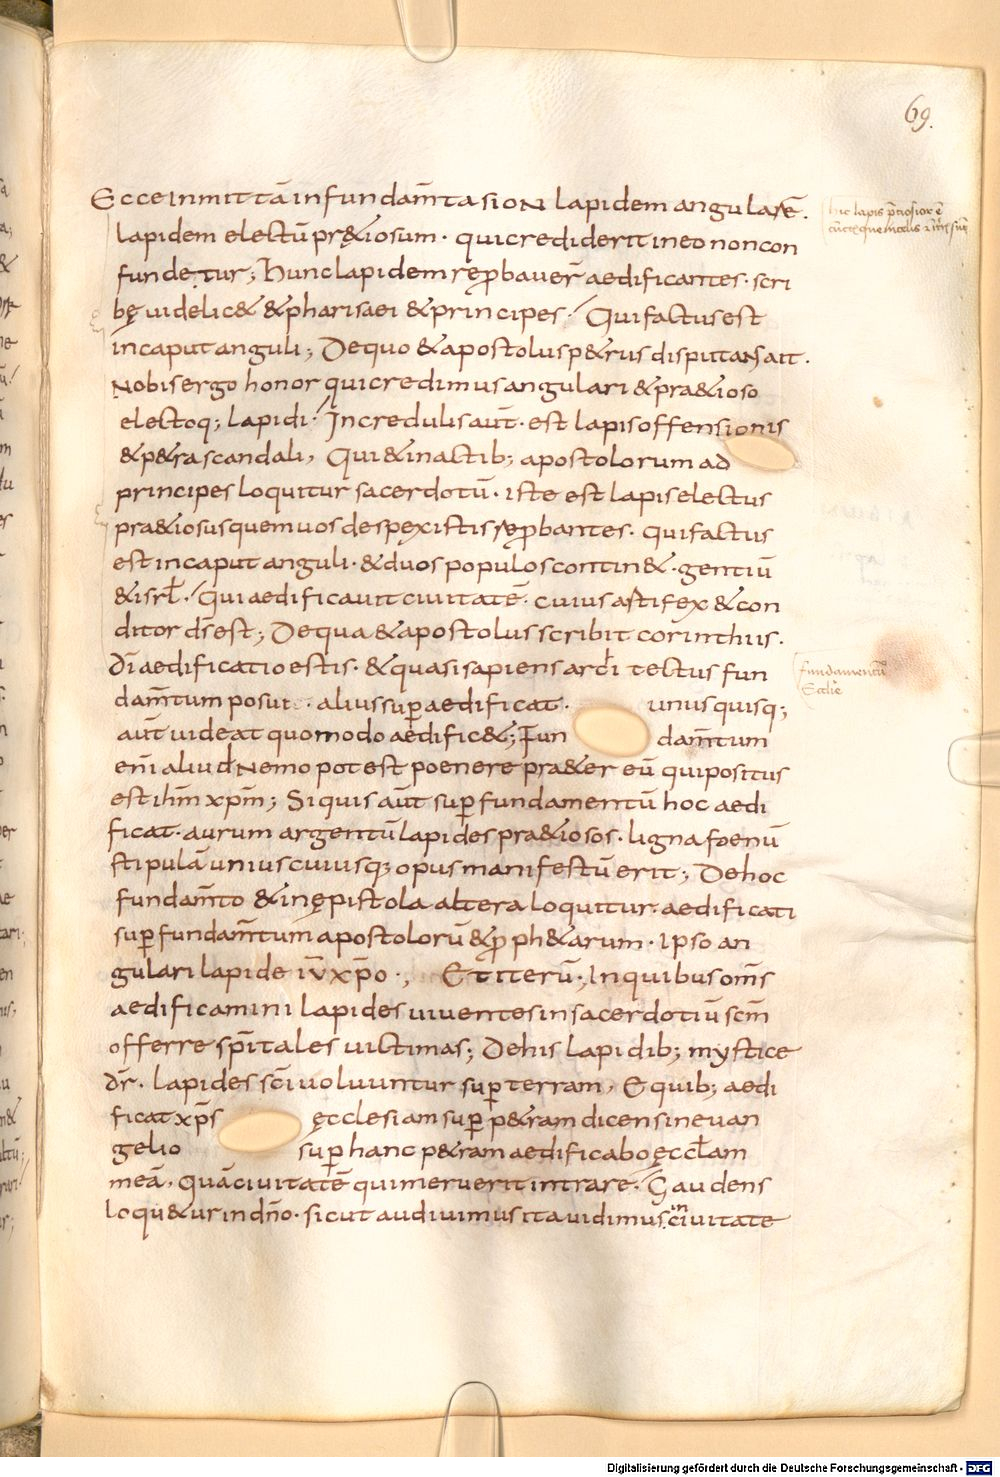 69.
Ecce inmittā in fundam̄ta sion lapidem angularē.
hic lapis p̄ciosior ē
lapidem electū pr&iosum · qui crediderit in eo non con
fundetur; Hunc lapidem rep̱bauer̄ aedificantes · scri
bę uidelic& & pharisaei & principes / Qui factus est
in caput anguli; De quo & apostolus p&rus disputans ait .
Nobis ergo honor qui credimus angulari & pra&ioso
electoq; lapidi / Incredulis aūt · est lapis offensionis
& p&ra scandali, Qui & in actib; apostolorum ad
principes loquitur sacerdotū · iste est lapis electus
pra&iosus quem uos despexistis rep̱bantes . Qui factus
est in caput anguli · & duos populos contin& · gentiū
& isrł / Qui aedificauit ciuitatē . cuius astifex & con
ditor d̄s est; De qua & apostolus scribit corinthiis .
D̄i aedificatio estis · & quasi sapiens ardi tectus fun
fundamentū
Ecclīe
dam̄tum posui · alius sup̱ aedificat · unus quisq;
aūt uideat quomodo aedific&; Fun dam̄tum
eni̅ aliud Nemo potest poenere pra&er eū qui positus
est ih̄m xp̄m; Si quis aūt sup̱ fundamentū hoc aedi
ficat · aurum argentū lapides pra&iosos · ligna foenū
stipulā unius cuiusq; opus manifestū erit; De hoc
fundam̄to & in ępistola altera loquitur · aedificati
sup̱ fundam̄tum apostolorū & p̱ph&arum · Ipso an
gulari lapide iū xp̄o ; Et iterū · In quibus om̄s
aedificamini lapides uiuentes in sacerdotiū sc̄m
offerre sp̄itales uictimas; De his lapidib; mystice
dr̄ . lapides sc̄i uoluuntur sup̱ terram, E quib; aedi
ficat xp̄s ęcclesiam sup̱ p&ram dicens in euan
gelio sup̱ hanc p&ram aedificabo ęccłam
meā . quā ciuitatē qui meruerit intrare / Gaudens
loqu&ur in dn̄o · sicut audiuimus ita uidimus in ciuitate
Digitalisierung gefördert durch die Deutsche Forschungsgemeinschaft - DFG